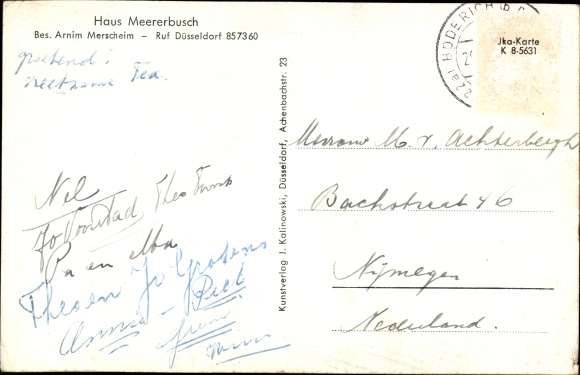 Haus Meererbusch
Bes. Arnim Merscheim – Ruf Düsseldorf 857360
Tea.
Nel
Jo Voorstad Theo
Pa en Ma
Theo en Jo
Annie - Piet
Kunstverlag J. Kalinowski, Düsseldorf, Achenbachstr. 23
BÜDERICH b. D.
Jka-Karte
K 8-5631
Mevrouw M. v. Achterbergh
Bachstraat 46
Nijmegen
Nederland.